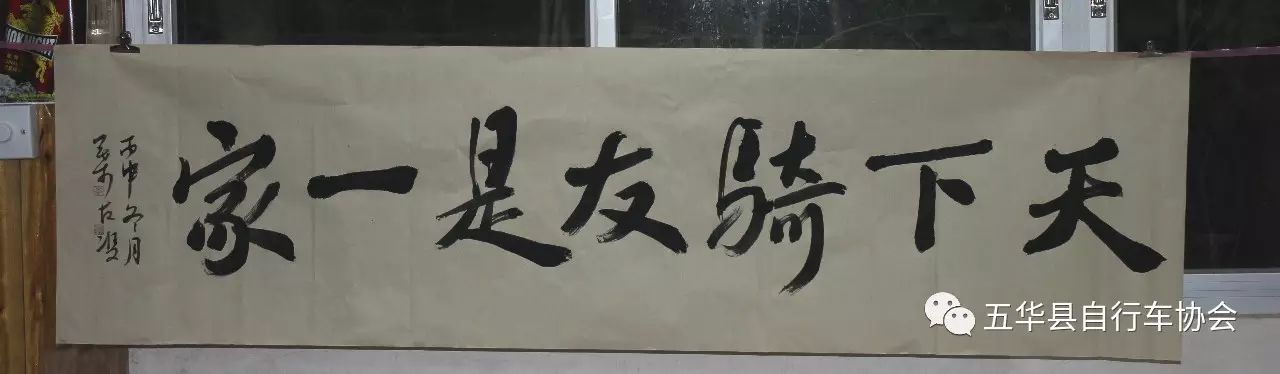 天下騎友是一家
丙申冬月
五华县自行车协会